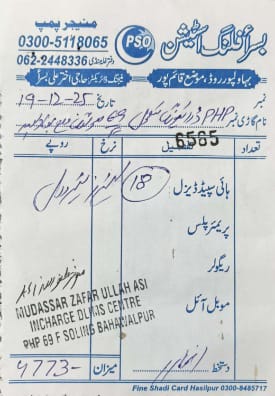 منیجر پمپ
0300-5118065
062-2448336
PSO
بسرا فلنگ اسٹیشن
بہاولپور روڈ، موضع قائم پور
مینجنگ ڈائریکٹر حاجی اختر علی بسرا
نمبر
تاریخ 19-12-25
نام گاڑی نمبر PHP
6565
تعداد تفصیل نرخ روپے
ہائی سپیڈ ڈیزل 18
پریمئر پلس
ریگولر
موبل آئل
MUDASSAR ZAFAR ULLAH ASI
INCHARGE DLIMS CENTRE
PHP 69 F SOLING BAHAWALPUR
دستخط
میزان 4773-
Fine Shadi Card Hasilpur 0300-8485717